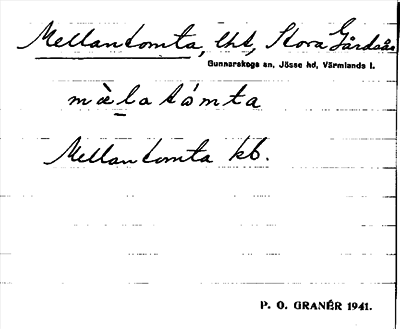 Mellantomta, lht, Stora Gårdsås
Gunnarskogs sn, Jösse hd, Värmlands l.
mèlatómta
Mellantomta kb.
P. O. GRANÉR 1941.